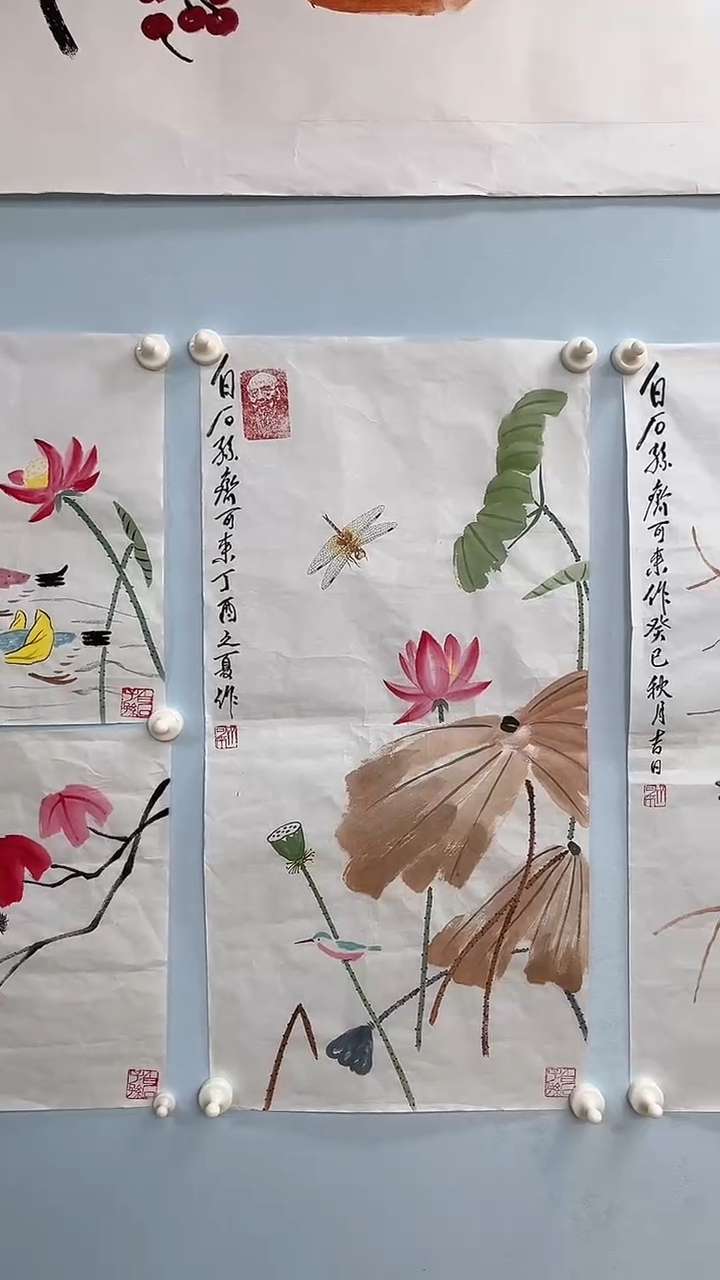 白石孫齊可来丁酉之夏作
白石孫齊可来作癸巳秋月吉日